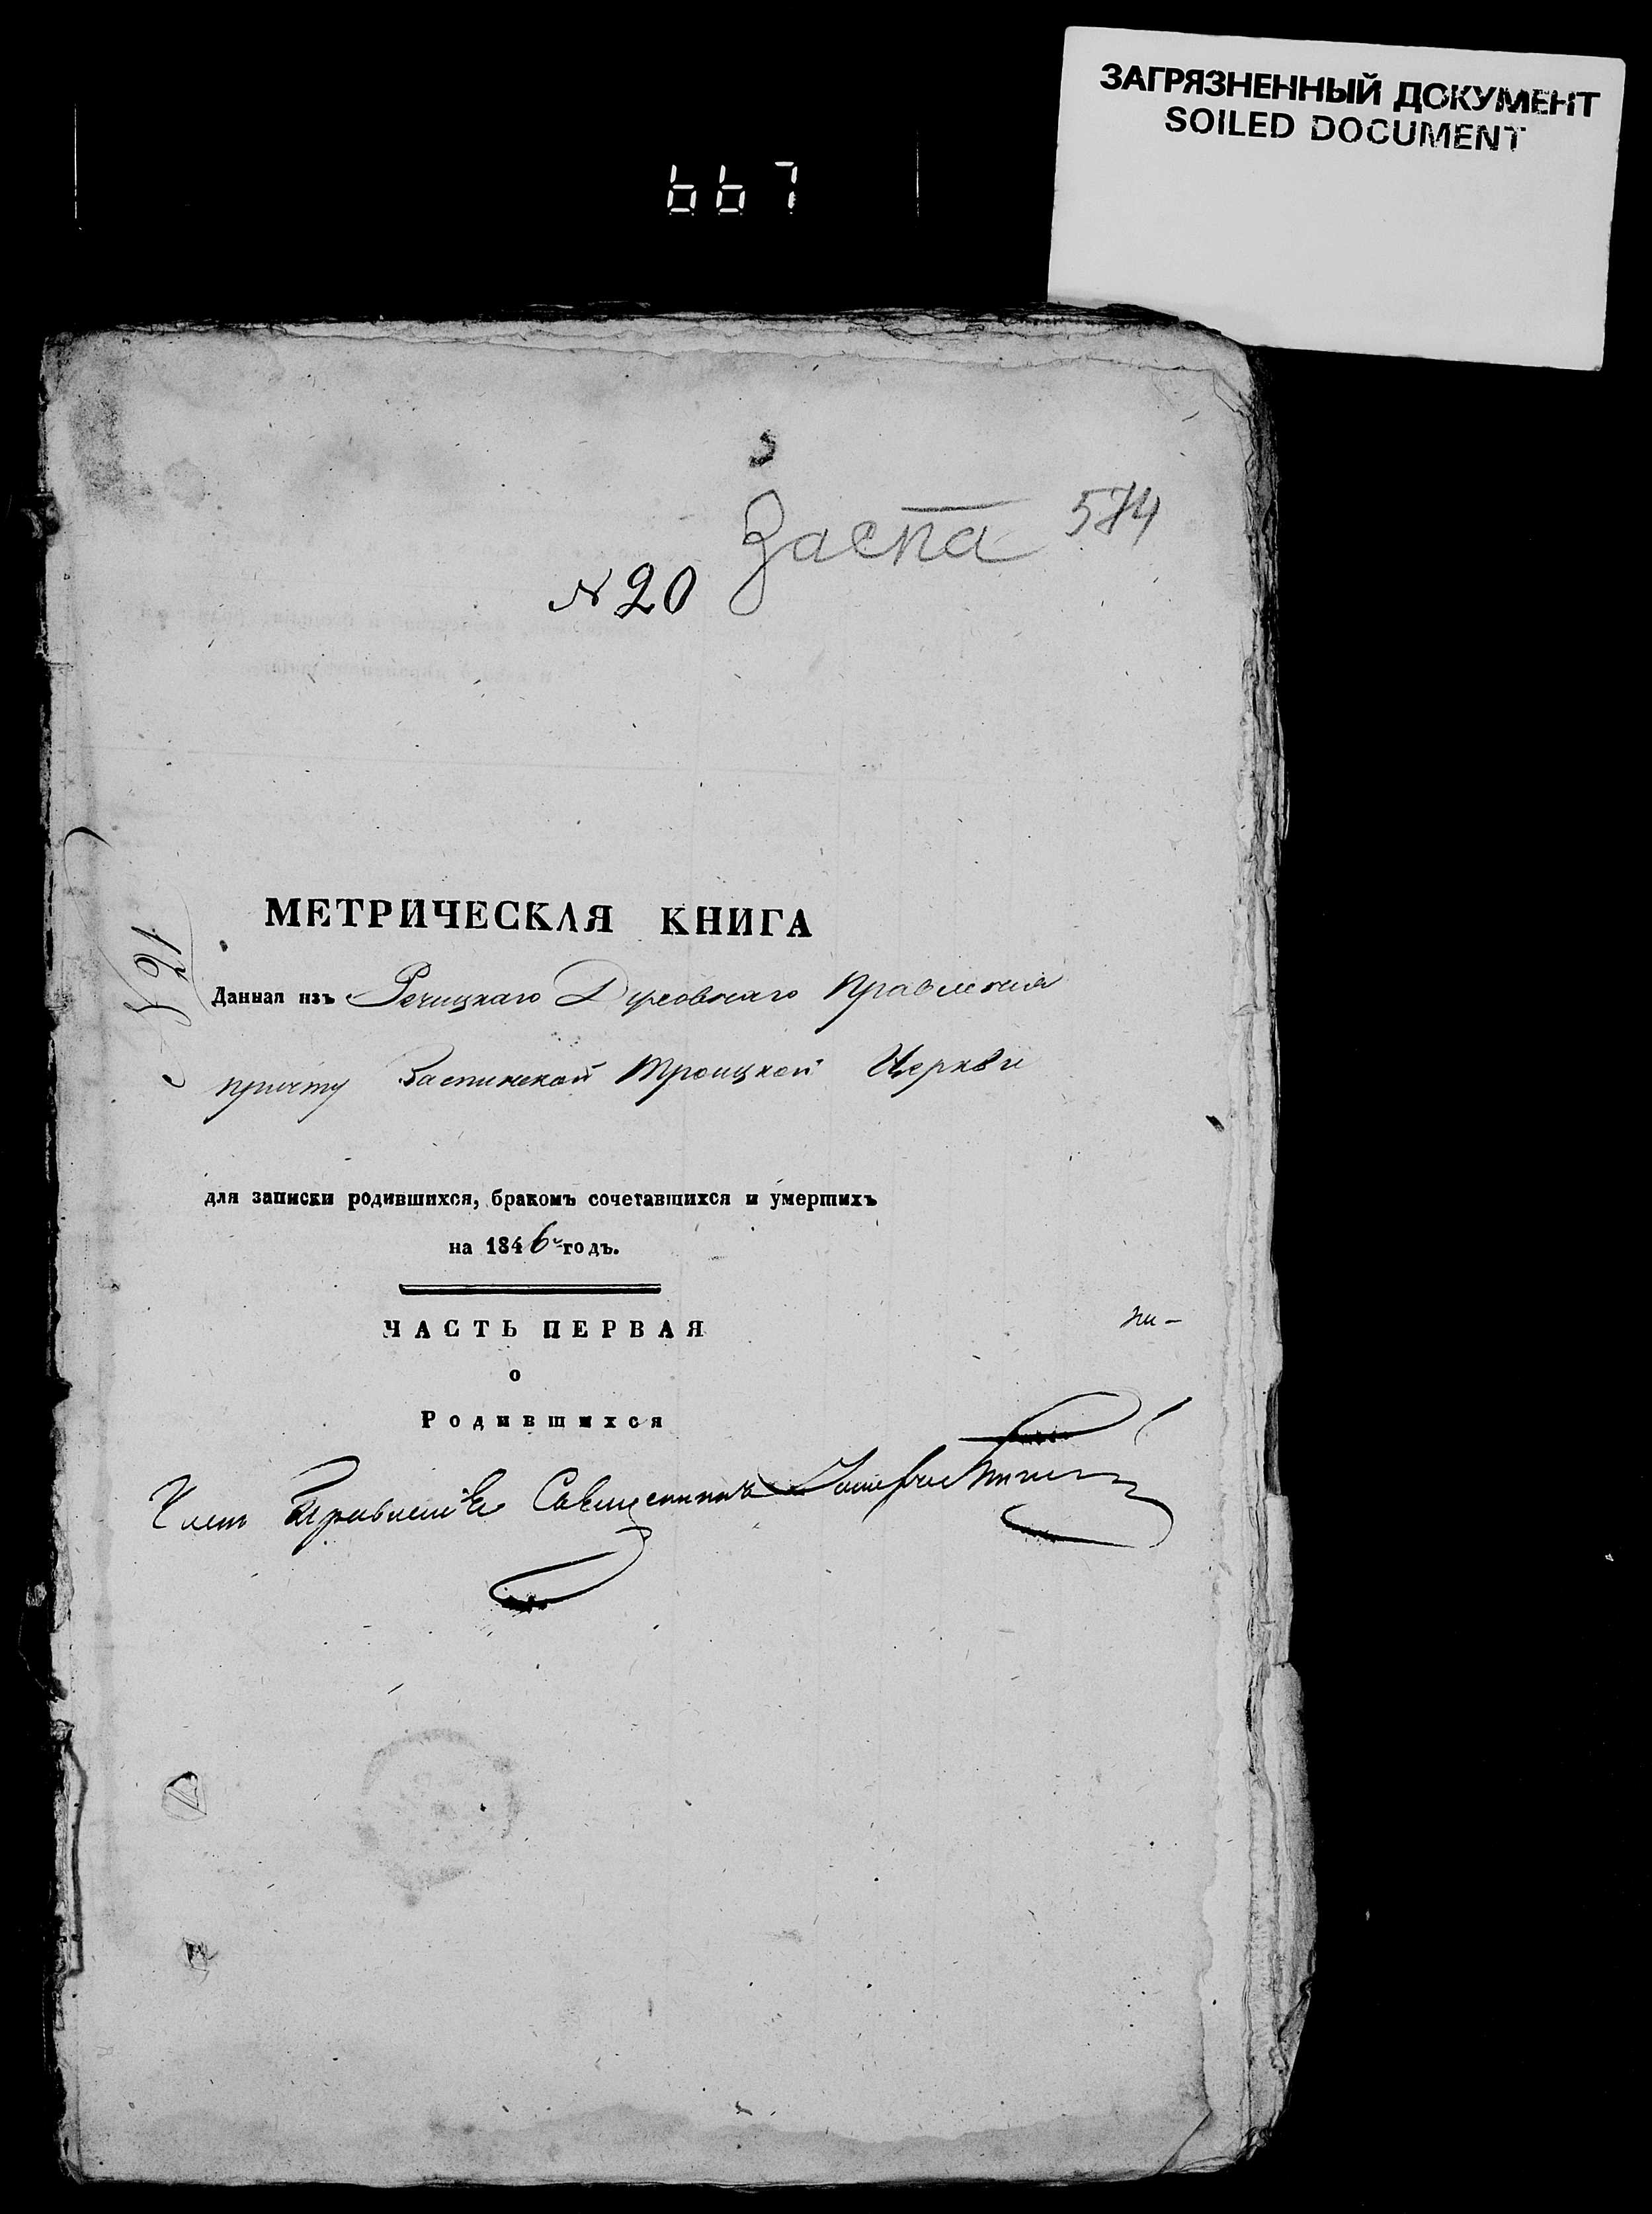 ЗАГРЯЗНЕННЫЙ ДОКУМЕНТ
SOILED DOCUMENT
667
Заспа 574
№ 20
МЕТРИЧЕСКАЯ КНИГА
№ 21
Данная изъ Речицкаго Духовнаго Правленія
причту Заспинской Троицкой Церкви
для записки родившихся, бракомъ сочетавшихся и умершихъ
на 1846й годъ.
ЧАСТЬ ПЕРВАЯ
о
Родившихся
Членъ Правленія Священникъ